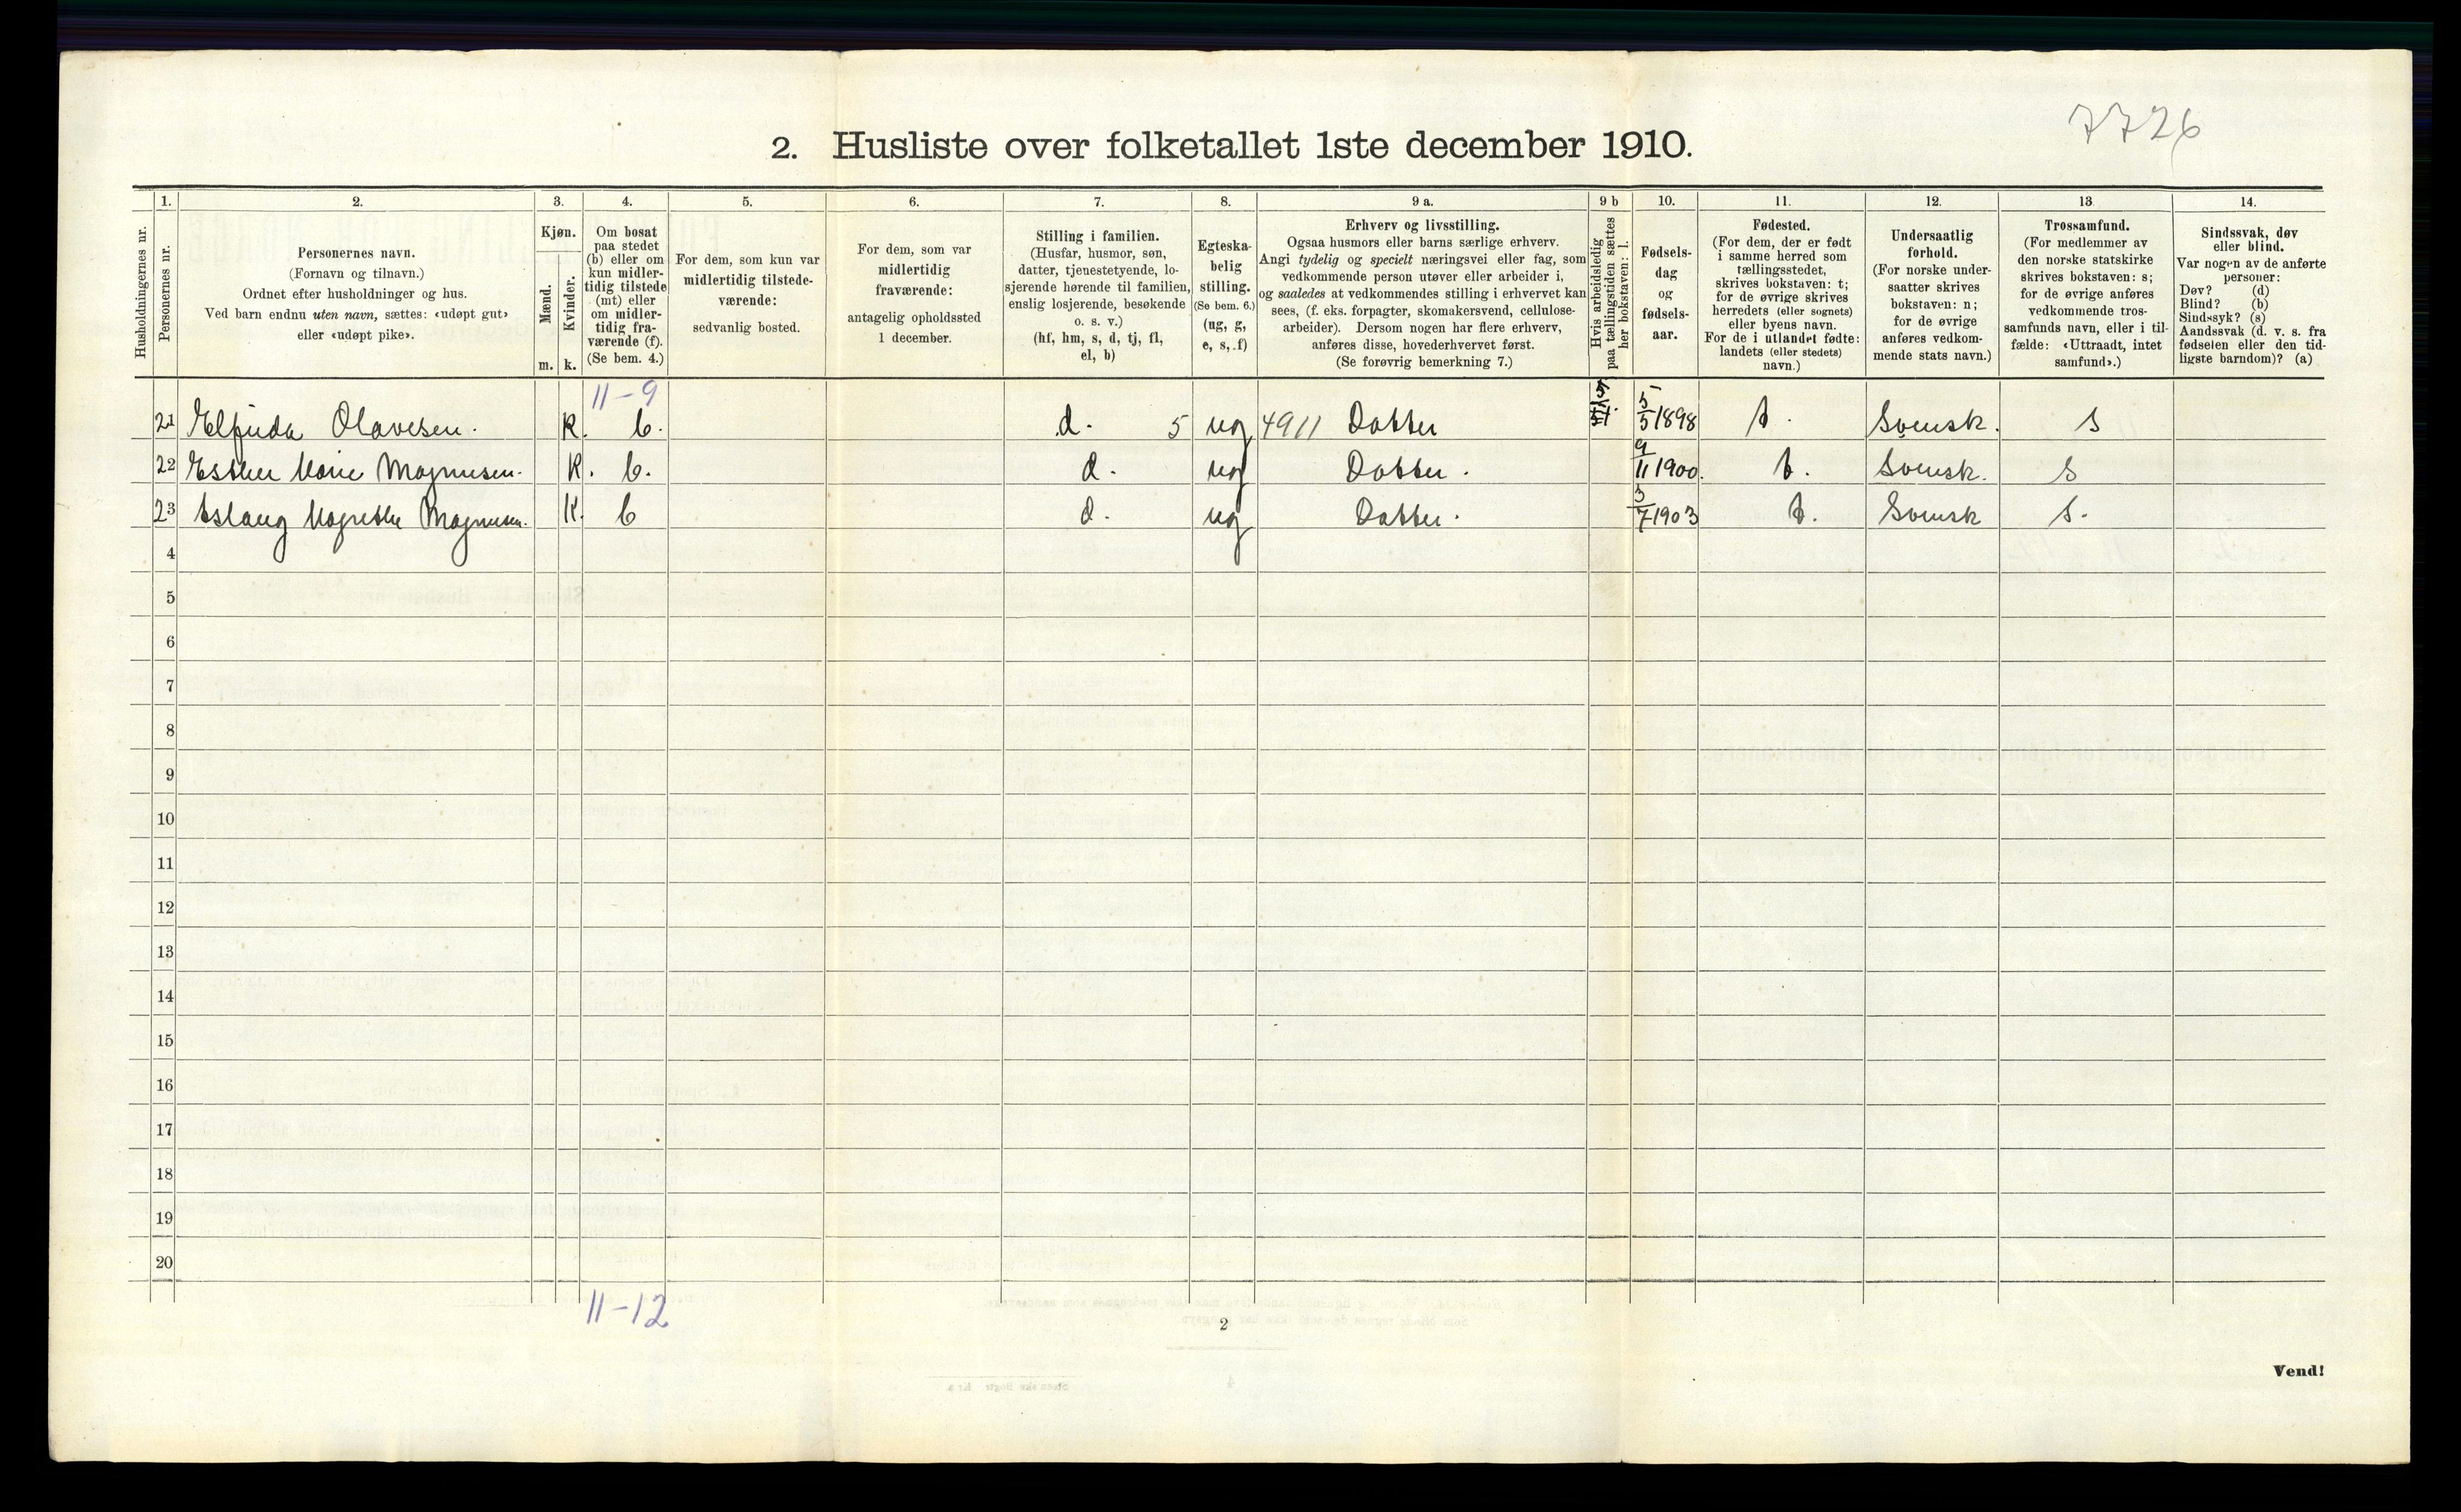 7726
2. Husliste over folketallet 1ste december 1910.
Husholdningernes nr.
1.
Personernes nr.
2.
Personernes navn.
(Fornavn og tilnavn.)
Ordnet efter husholdninger og hus.
Ved barn endnu uten navn, sættes: «udøpt gut»
eller «udøpt pike».
3.
Kjøn.
Mænd.
Kvinder.
m. k.
4.
Om bosat
paa stedet
(b) eller om
kun midler-
tidig tilstede
(mt) eller
om midler-
tidig fra-
værende (f).
(Se bem. 4.)
5.
For dem, som kun var
midlertidig tilstede-
værende:
sedvanlig bosted.
6.
For dem, som var
midlertidig
fraværende:
antagelig opholdssted
1 december.
7.
Stilling i familien.
(Husfar, husmor, søn,
datter, tjenestetyende, lo-
sjerende hørende til familien,
enslig losjerende, besøkende
o. s. v.)
(hf, hm, s, d, tj, fl,
el, b)
8.
Egteska-
belig
stilling.
(Se bem. 6.)
(ug, g,
e, s, f)
9 a.
Erhverv og livsstilling.
Ogsaa husmors eller barns særlige erhverv.
Angi tydelig og specielt næringsvei eller fag, som
vedkommende person utøver eller arbeider i,
og saaledes at vedkommendes stilling i erhvervet kan
sees, (f. eks. forpagter, skomakersvend, cellulose-
arbeider). Dersom nogen har flere erhverv,
anføres disse, hovederhvervet først.
(Se forøvrig bemerkning 7.)
9 b
Hvis arbeidsledig
paa tællingstiden sættes
her bokstaven: l.
10.
Fødsels-
dag
og
fødsels-
aar.
11.
Fødested.
(For dem, der er født
i samme herred som
tællingsstedet,
skrives bokstaven: t;
for de øvrige skrives
herredets (eller sognets)
eller byens navn.
For de i utlandet fødte:
landets (eller stedets)
navn.)
12.
Undersaatlig
forhold.
(For norske under-
saatter skrives
bokstaven: n;
for de øvrige
anføres vedkom-
mende stats navn.)
13
Trossamfund.
(For medlemmer av
den norske statskirke
skrives bokstaven: s;
for de øvrige anføres
vedkommende tros-
samfunds navn, eller i til-
fælde: «Uttraadt, intet
samfund».)
14.
Sindssvak, døv
eller blind.
Var nogen av de anførte
personer:
Døv? (d)
Blind? (b)
Sindssyk? (s)
Aandssvak (d. v. s. fra
fødselen eller den tid-
ligste barndom)? (a)
11-9
21 Elfrida Olavesen. K. b. d. 5 ug 4911 Datter 5/5 1898 t. Svensk. s
22 Esther Marie Magnusen. K. b. d. ug Datter. 9/11 1900. t. Svensk. s
23 Aslaug Magrethe Magnusen. K. b d. ug Datter. 5/7 1903 t. Svensk s.
4
5
6
7
8
9
10
11
12
13
14
15
16
17
18
19
20
11-12
2
Vend!